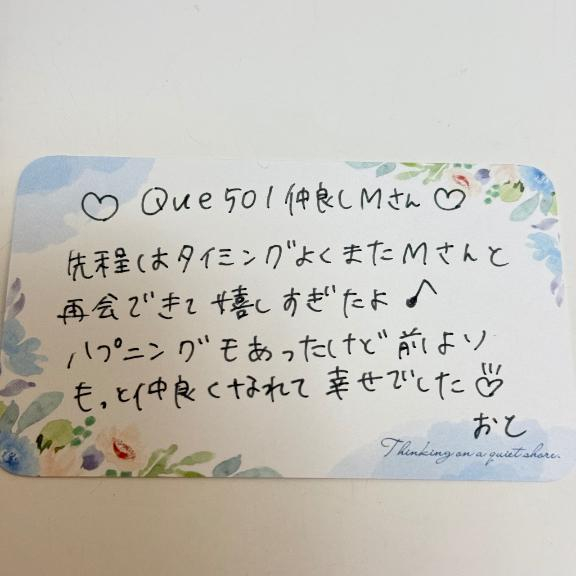 ♡ Que 501 仲良しMさん ♡
先程はタイミングよくまたMさんと
再会できて嬉しすぎたよ♪
ハプニングもあったけど前より
もっと仲良くなれて幸せでした♡
おと
Thinking on a quiet shore.